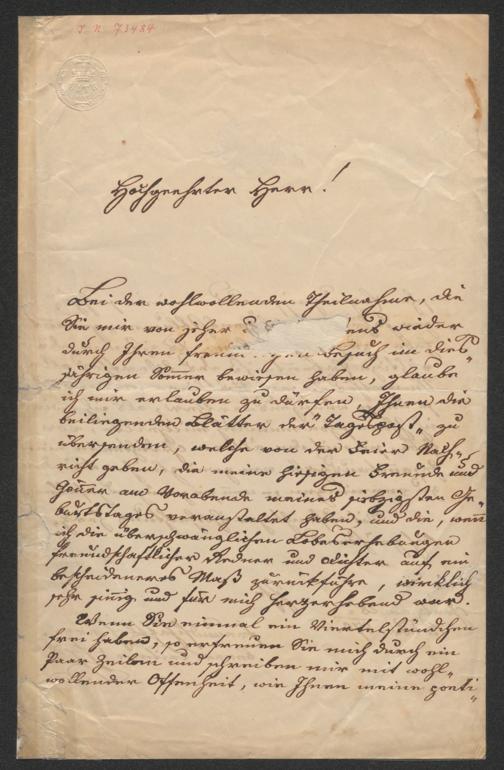 I. N. 73484
Hochgeehrter Herr!
Bei der wohlwollenden Theilnahme, die
Sie mir von jeher wieder
durch Ihren Besuch im dies-
jährigen Sommer bewiesen haben, glaube
ich mir erlauben zu dürfen, Ihnen die
beiliegenden Blätter der "Tagespost" zu
übersenden, welche von der Feier Nach-
richt geben, die meine hiesigen Freunde und
Gönner am Vorabende meines siebzigsten Ge-
burtstages veranstaltet haben, und die, wenn
ich die überschwänglichen Lobeserhebungen
freundschaftlicher Redner und Dichter auf ein
bescheideneres Maß zurückführe, wirklich
sehr sinnig und für mich herzerhebend war.
Wenn Sie einmal ein Viertelstündchen
frei haben, so erfreuen Sie mich durch ein
Paar Zeilen und schreiben mir mit wohl-
wollender Offenheit, wie Ihnen meine poeti-